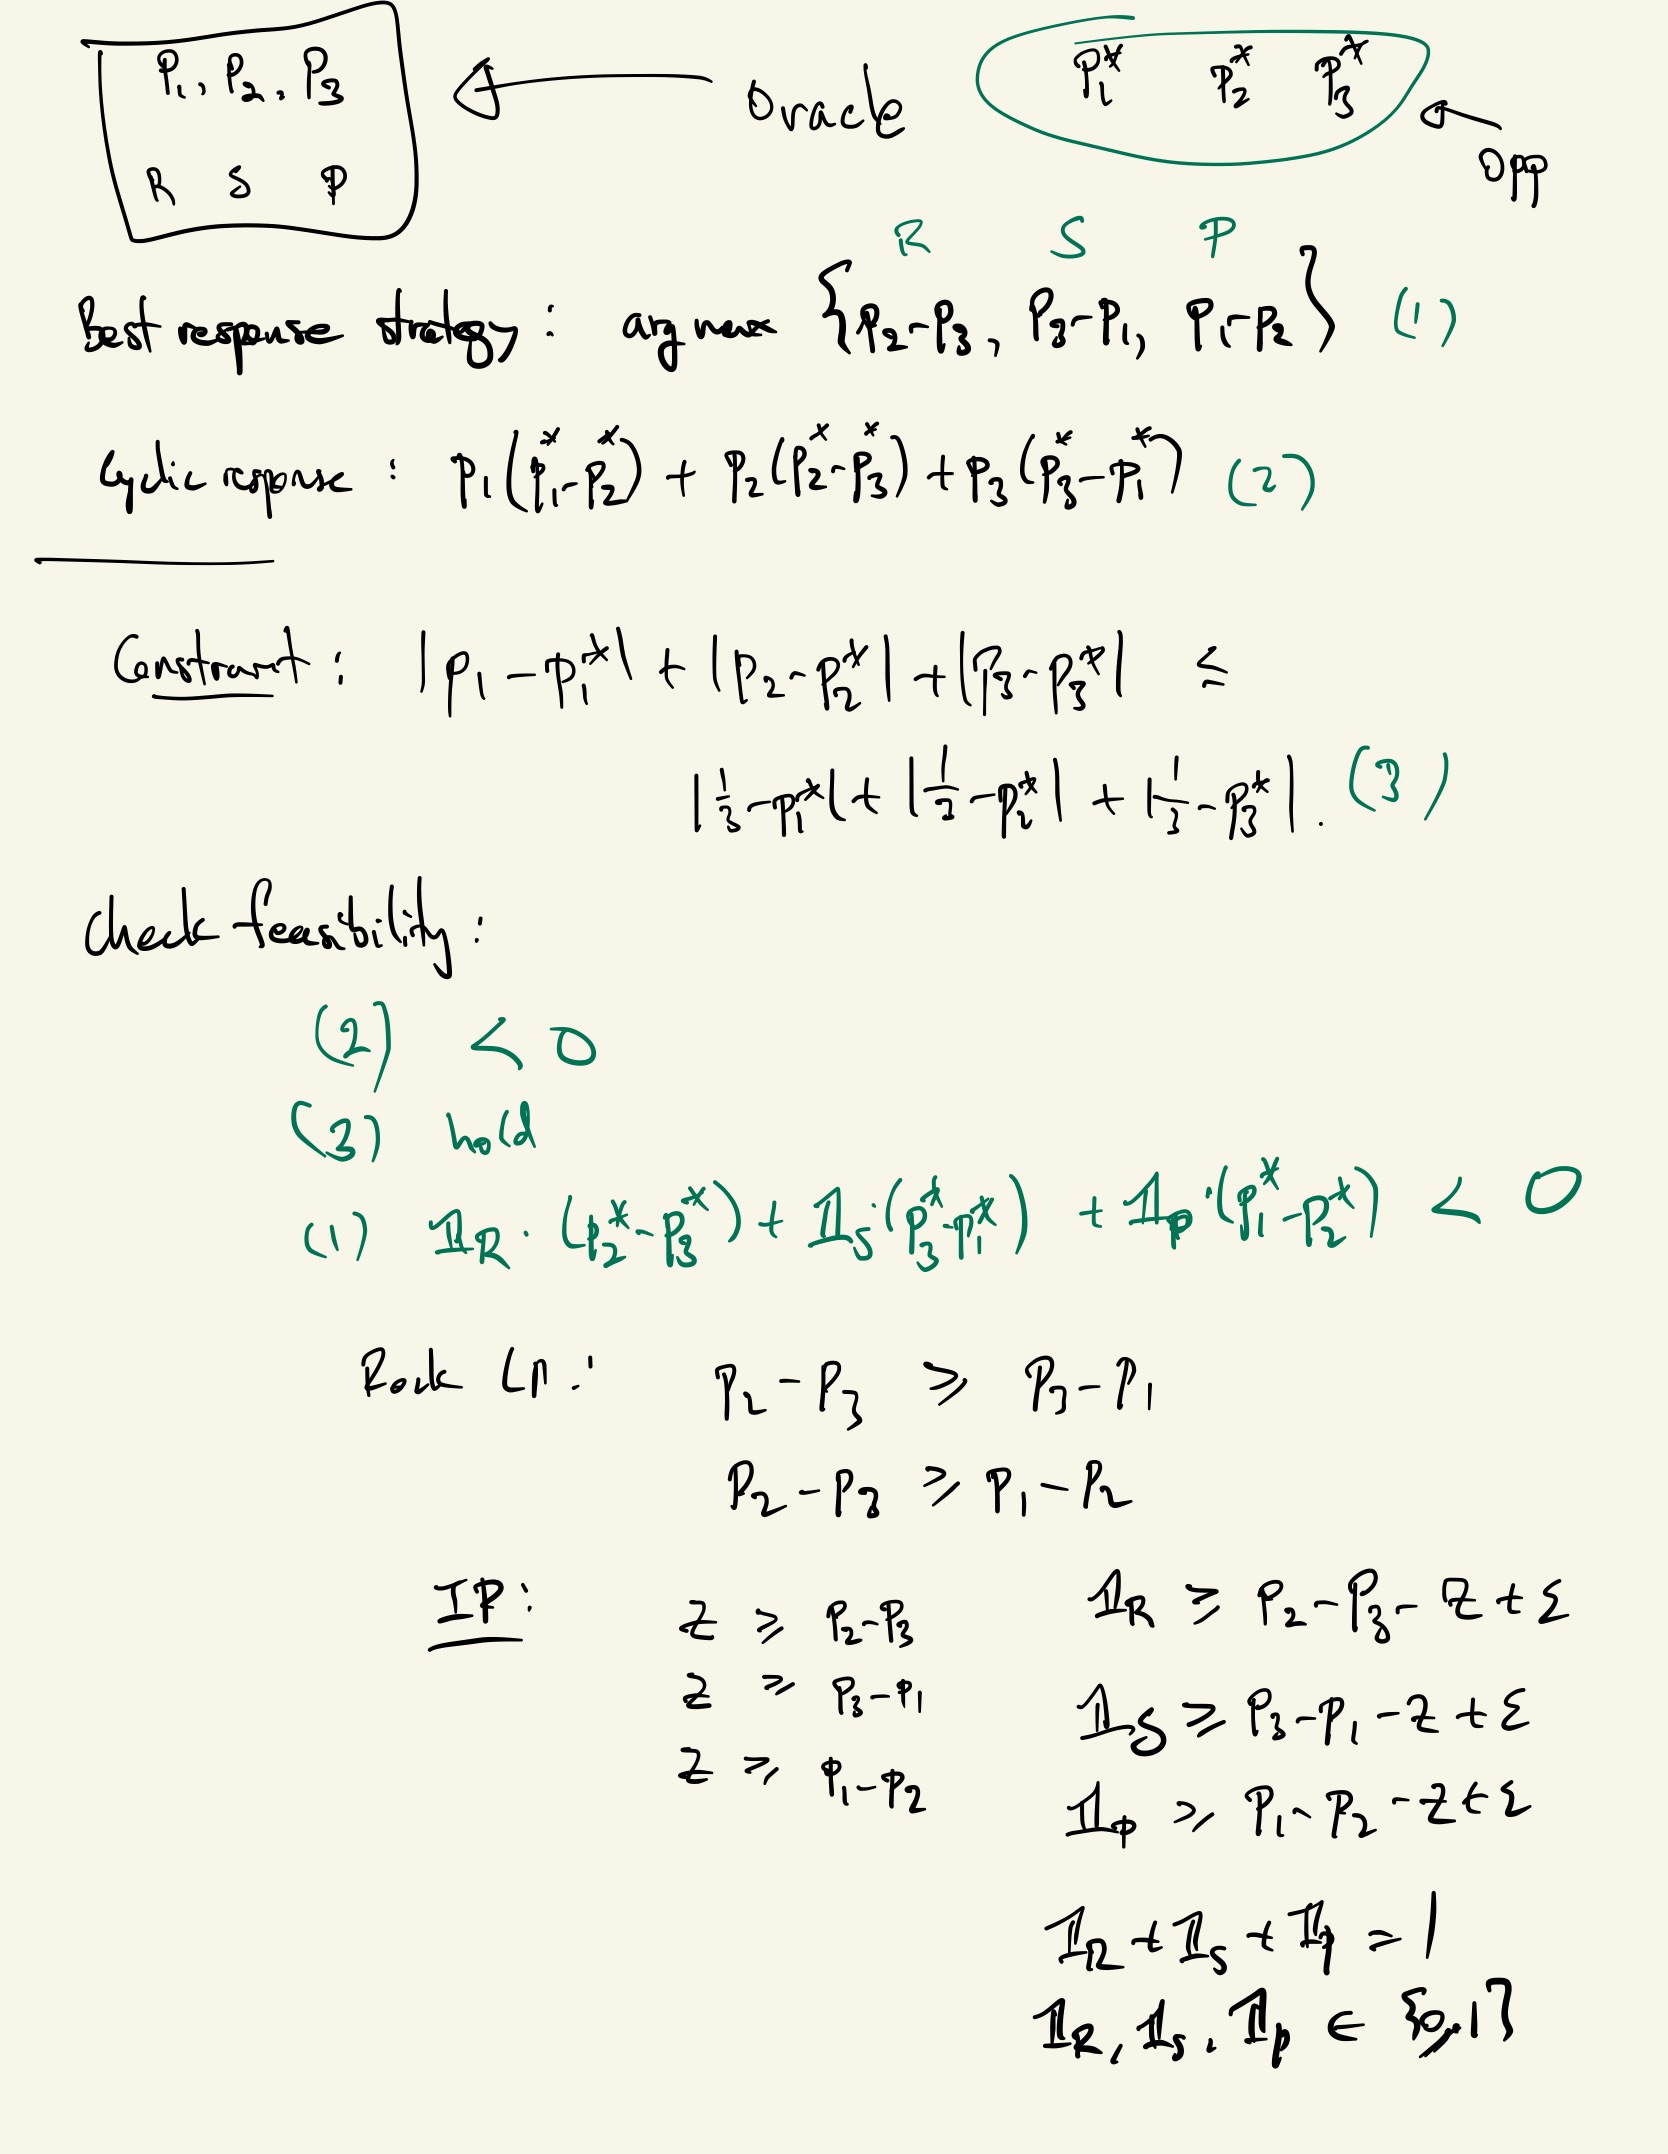 P₁, P₂, P₃
R S P
Oracle
P₁* P₂* P₃*
Opp
R S P
Best response strategy : arg max {P₂-P₃, P₃-P₁, P₁-P₂} (1)
Cyclic response : P₁(P₁*-P₂*) + P₂(P₂*-P₃*) + P₃(P₃*-P₁*) (2)
Constraint : |P₁-P₁*| + |P₂-P₂*| + |P₃-P₃*| ≤
|1/3-P₁*| + |1/3-P₂*| + |1/3-P₃*|. (3)
Check feasibility :
(2) < 0
(3) hold
(1) 𝟙_R · (P₂*-P₃*) + 𝟙_S · (P₃*-P₁*) + 𝟙_P · (P₁*-P₂*) < 0
Rock LP : P₂-P₃ ≥ P₃-P₁
P₂-P₃ ≥ P₁-P₂
IP :
Z ≥ P₂-P₃
Z ≥ P₃-P₁
Z ≥ P₁-P₂
𝟙_R ≥ P₂-P₃-Z+ε
𝟙_S ≥ P₃-P₁-Z+ε
𝟙_P ≥ P₁-P₂-Z+ε
𝟙_R + 𝟙_S + 𝟙_P = 1
𝟙_R, 𝟙_S, 𝟙_P ∈ {0,1}